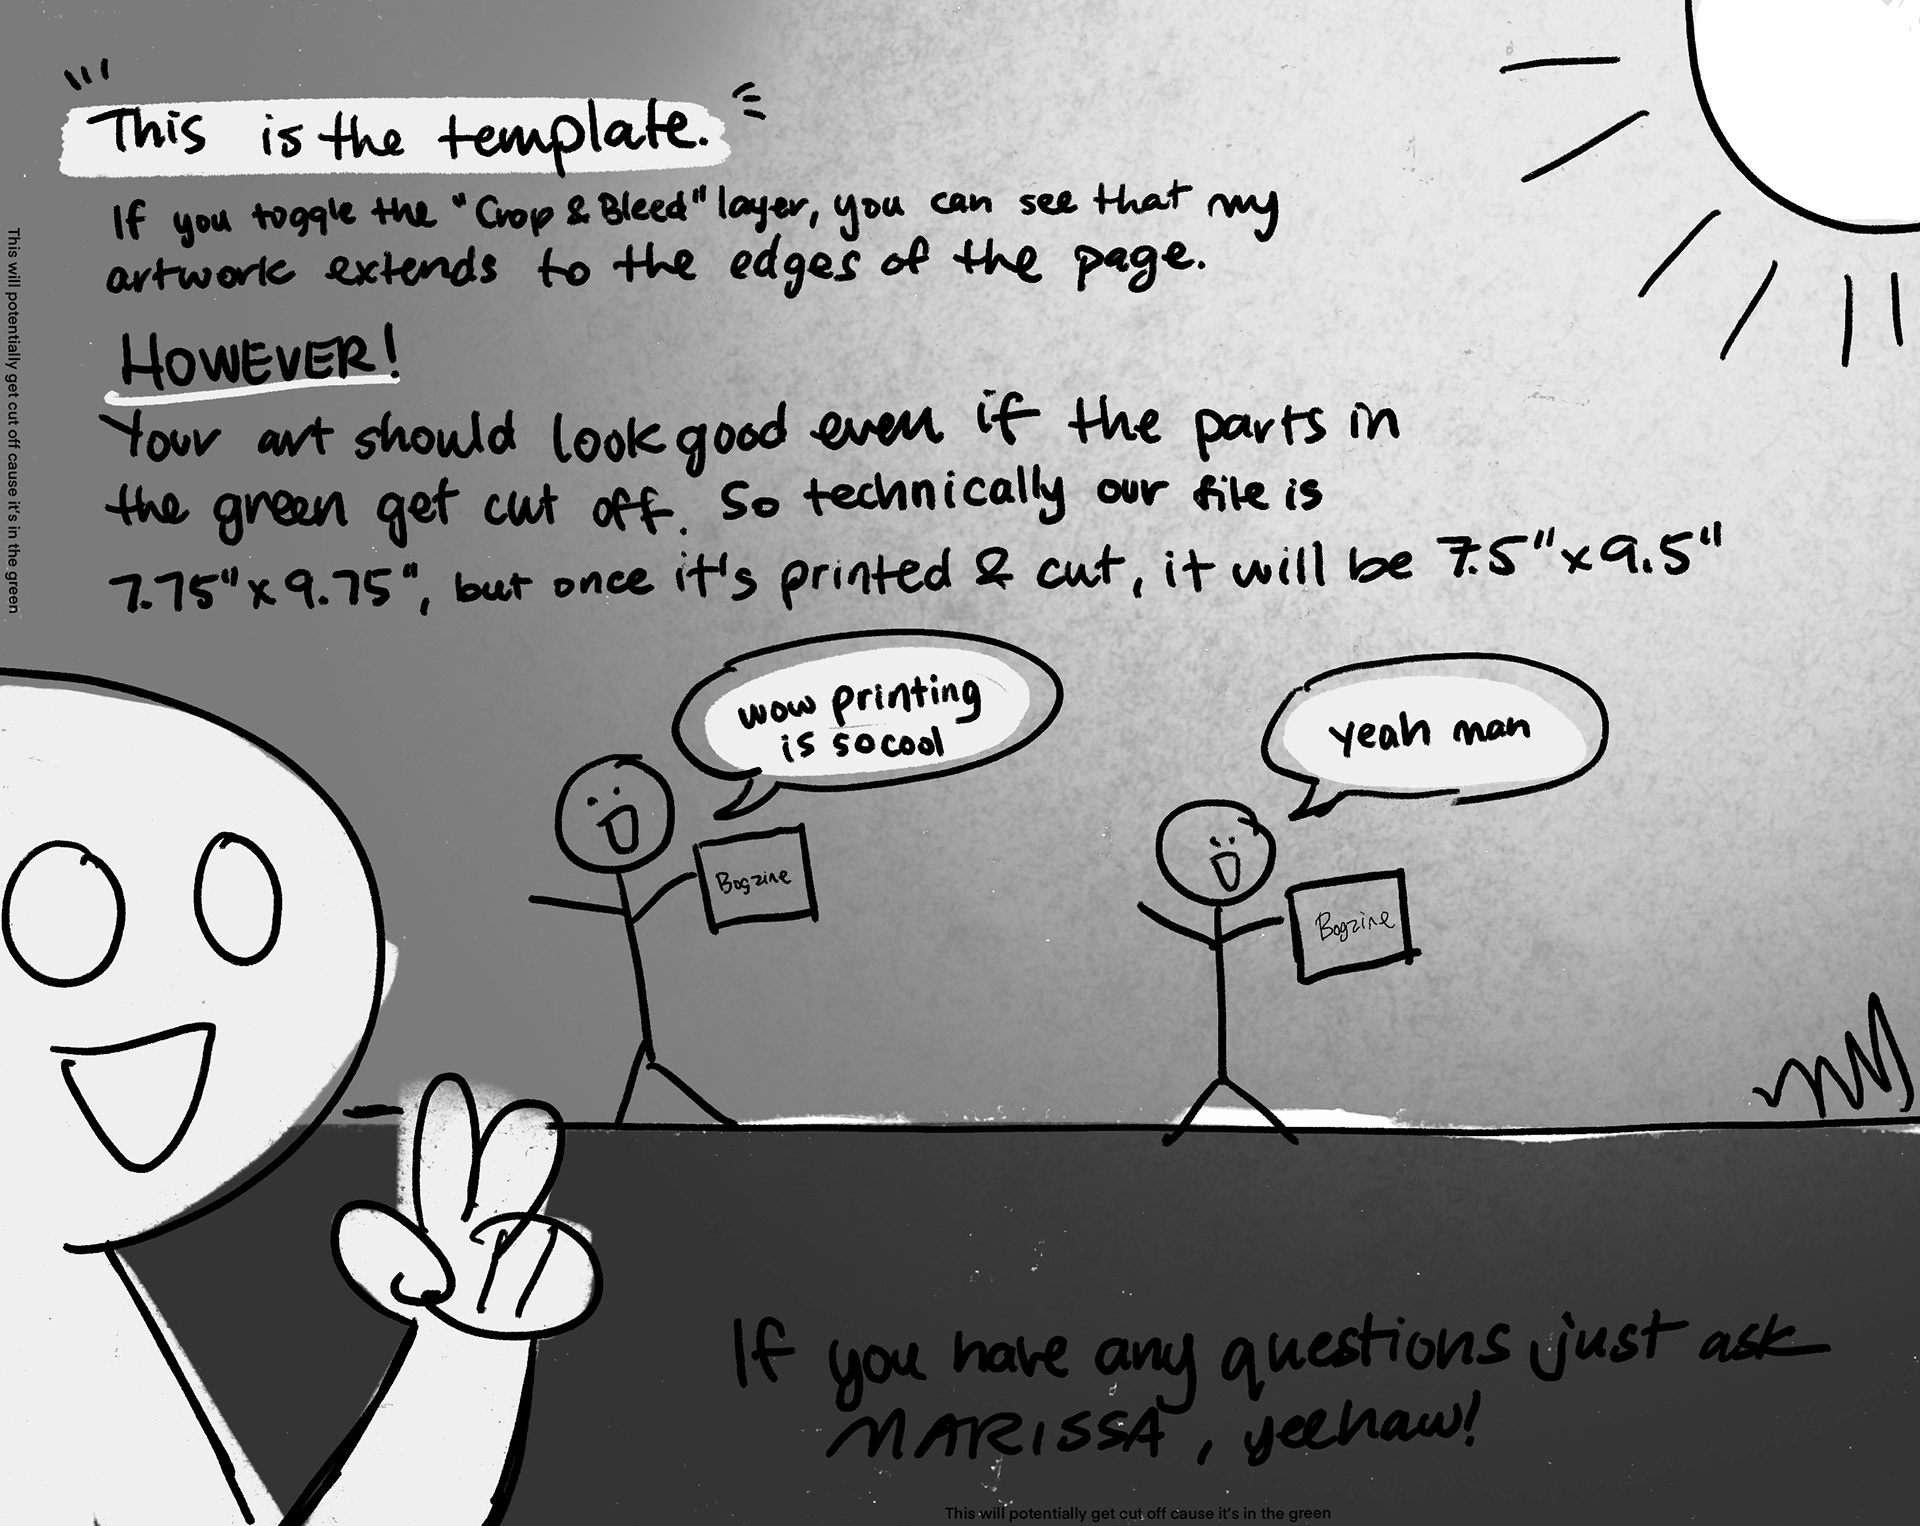 This is the template.
If you toggle the "Crop & Bleed" layer, you can see that my
artwork extends to the edges of the page.
HOWEVER!
Your art should look good even if the parts in
the green get cut off. So technically our file is
7.75" x 9.75", but once it's printed & cut, it will be 7.5" x 9.5"
This will potentially get cut off cause it's in the green
wow printing
is so cool
yeah man
Bogzine
Bogzine
If you have any questions just ask
MARISSA, yeehaw!
This will potentially get cut off cause it's in the green